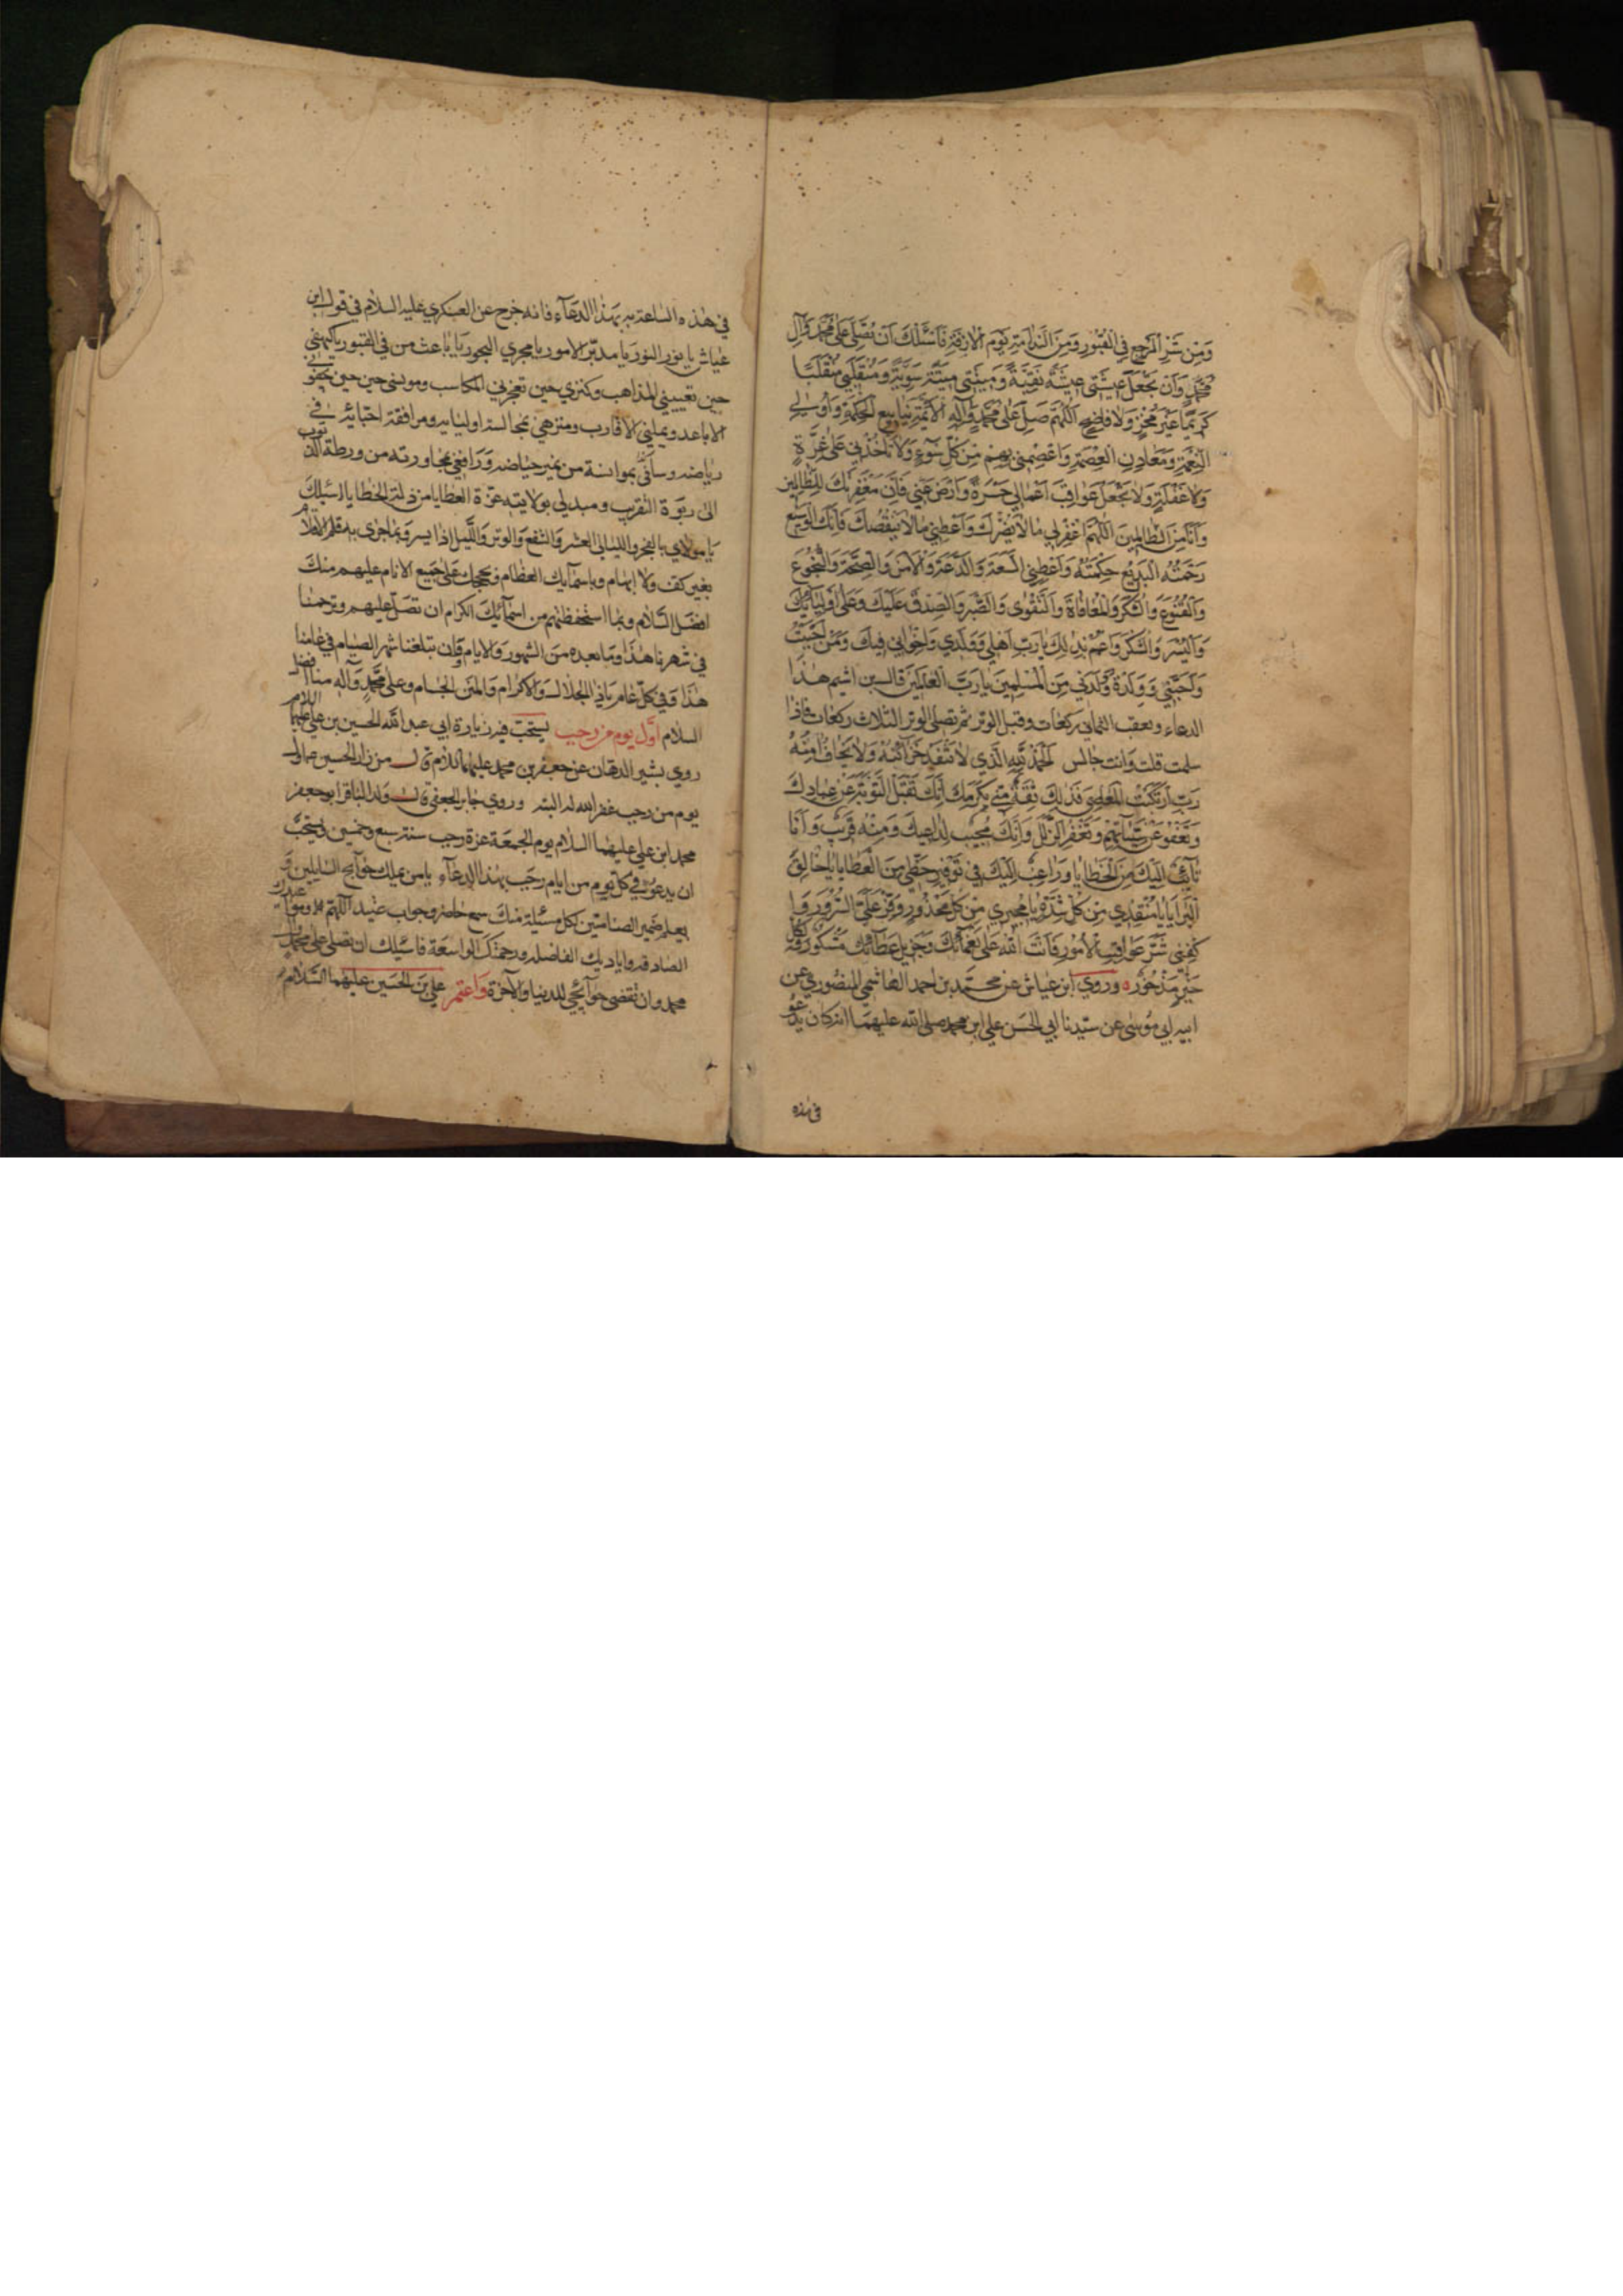 وَمِنْ شَرِّ الْمَرْجِعِ فِي الْقُبُورِ وَمِنَ النَّدَامَةِ يَوْمَ الْآزِفَةِ فَاَسْئَلُكَ اَنْ تُصَلِّيَ عَلٰى مُحَمَّدٍ وَآلِ
مُحَمَّدٍ وَاَنْ تَجْعَلَ عِيشَتِي عِيشَةً نَقِيَّةً وَمِيتَتِي مِيتَةً سَوِيَّةً وَمُنْقَلَبِي مُنْقَلَبًا
كَرِيمًا غَيْرَ مُخْزٍ وَلَا فَاضِحٍ اَللّٰهُمَّ صَلِّ عَلٰى مُحَمَّدٍ وَآلِهِ الْاَئِمَّةِ يَنَابِيعِ الْحِكْمَةِ وَاُولِي
النِّعْمَةِ وَمَعَادِنِ الْعِصْمَةِ وَاعْصِمْنِي بِهِمْ مِنْ كُلِّ سُوءٍ وَلَا تَأْخُذْنِي عَلٰى غِرَّةٍ
وَلَا غَفْلَةٍ وَلَا تَجْعَلْ عَوَاقِبَ اَعْمَالِي حَسْرَةً وَارْضَ عَنِّي فَاِنَّ مَغْفِرَتَكَ لِلظَّالِمِينَ
وَاَنَا مِنَ الظَّالِمِينَ اَللّٰهُمَّ اغْفِرْ لِي مَا لَا يَضُرُّكَ وَاَعْطِنِي مَا لَا يَنْقُصُكَ فَاِنَّكَ الْوَسِيعُ
رَحْمَتُهُ الْبَدِيعُ حِكْمَتُهُ وَاَعْطِنِي السَّعَةَ وَالدَّعَةَ وَالْاَمْنَ وَالصِّحَّةَ وَالنُّجُوعَ
وَالْقُنُوعَ وَالشُّكْرَ وَالْمُعَافَاةَ وَالتَّقْوٰى وَالصَّبْرَ وَالصِّدْقَ عَلَيْكَ وَعَلٰى اَوْلِيَائِكَ
وَالْيُسْرَ وَالشُّكْرَ وَاعْمُمْ بِذٰلِكَ يَا رَبِّ اَهْلِي وَوَلَدِي وَاِخْوَانِي فِيكَ وَمَنْ اَحْبَبْتُ
وَاَحَبَّنِي وَوَلَدْتُ وَوَلَدَنِي مِنَ الْمُسْلِمِينَ يَا رَبَّ الْعٰلَمِينَ قال ابن اشيم هٰذَا
الدعاء ويعقب الثماني ركعات وقبل الوتر ثم تصلى الوتر الثلاث ركعات فاذا
سلمت قلت وانت جالس اَلْحَمْدُ لِلّٰهِ الَّذِي لَا تَنْفَدُ خَزَائِنُهُ وَلَا يَخَافُ اٰمِنُهُ
رَبِّ ارْتَكَبْتُ الْمَعَاصِيَ فَذٰلِكَ ثِقَةٌ مِنِّي بِكَرَمِكَ اِنَّكَ تَقْبَلُ التَّوْبَةَ عَنْ عِبَادِكَ
وَتَعْفُو عَنْ سَيِّئَاتِهِمْ وَتَغْفِرُ الزَّلَلَ وَاَنَّكَ مُجِيبٌ لِدَاعِيكَ وَمِنْهُ قَرِيبٌ وَاَنَا
تَائِبٌ اِلَيْكَ مِنَ الْخَطَايَا وَرَاغِبٌ اِلَيْكَ فِي تَوْفِيرِ حَظِّي مِنَ الْعَطَايَا يَا خَالِقَ
الْبَرَايَا يَا مُنْقِذِي مِنْ كُلِّ شِدَّةٍ يَا مُجِيرِي مِنْ كُلِّ مَحْذُورٍ وَفِّرْ عَلَيَّ السُّرُورَ وَا
كْفِنِي شَرَّ عَوَاقِبِ الْاُمُورِ فَاَنْتَ اللّٰهُ عَلٰى نَعْمَائِكَ وَجَزِيلِ عَطَائِكَ مَشْكُورٌ وَلِكُلِّ
خَيْرٍ مَذْخُورٌ ه وروي ابن عياش عن محمّد بن احمد الهاشمي المنصوري عن
ابيه ابي موسى عن سيّدنا ابي الحسن علي ابن محمد صلى الله عليهما انه كان يدعو
في هذه
في هٰذه الساعة به بهذا الدعآء فانه خرج عن العسكري عليه السلام في قول ابن
عياش يا نور النور يا مدبّر الامور يا مجري البحور يا باعث من في القبور يا كهفي
حين تعييني المذاهب وكنزي حين تعجزني المكاسب ومونسي حين تجفوني
الاباعد وتملني الاقارب ومنزهي بمجالسة اوليائه ومرافقة احبائه في
رياضه وساقيّ بموانسة من نمير حياضه ورافعي بمجاورته من ورطة الذنوب
الى ربوة التقريب ومبدلي بولايته عزة العطايا من ذلة الخطايا اسئلك
يا مولاي بالفجر والليالي العشر والشفع والوتر والليل اذا يسر وبما جرى به قلم الاقلام
بغير كف ولا ابهام وباسمآيك العظام وبحججك على جميع الانام عليهم منك
افضل السّلام وبما استحفظتهم من اسمآئك الكرام ان تصلّ عليهم وترحمنا
في شهرنا هذا وما بعده من الشهور والايام وان تبلغنا شهر الصيام في عامنا
هذا وفي كل عام يا ذا الجلال والاكرام والمنن الجسام وعلى محمّد وآله منا افضل
السلام اوّل يوم من رجب يستحبّ فيه زيارة ابي عبد الله الحسين بن علي عليهما السلام
روي بشير الدهان عن جعفر بن محمد عليهما السلام قال من زار الحسين ع اول
يوم من رجب غفر الله له البتة وروي جابر الجعفي قال ولد الباقر ابو جعفر
محمد ابن علي عليهما السلام يوم الجمعة غرة رجب سنة سبع وخمسين ويستحبّ
ان يدعو في كل يوم من ايام رجب بهذا الدعآء يا من يملك حوآئج السايلين و
يعلم ضمير الصامتين لكل مسئلة منك سمع حاضر وجواب عتيد اللهم ومواعيدك
الصادقة واياديك الفاضلة ورحمتك الواسعة فاسئلك ان تصلى على محمد وآل
محمد وان تقضى حوآئجي للدنيا والآخرة واعتمر علي بن الحسين عليهما السّلام